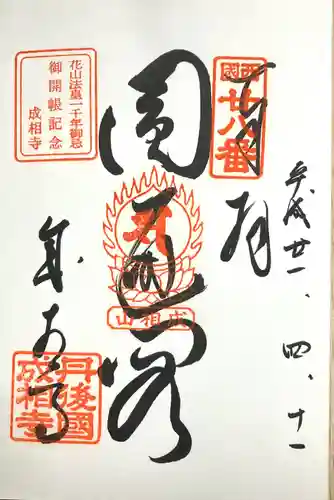 奉拝
西國
廿八番
平成廿一、四、十一
圓通閣
成相山
花山法皇一千年御忌
御開帳記念
成相寺
成相寺
丹後國
成相寺